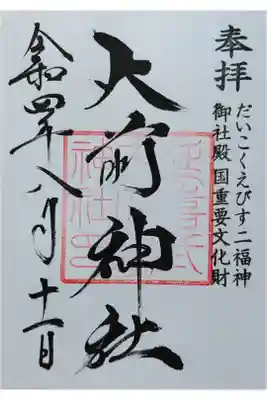 奉拝
だいこくえびす二福神
御社殿国重要文化財
大前神社
令和四年八月十一日